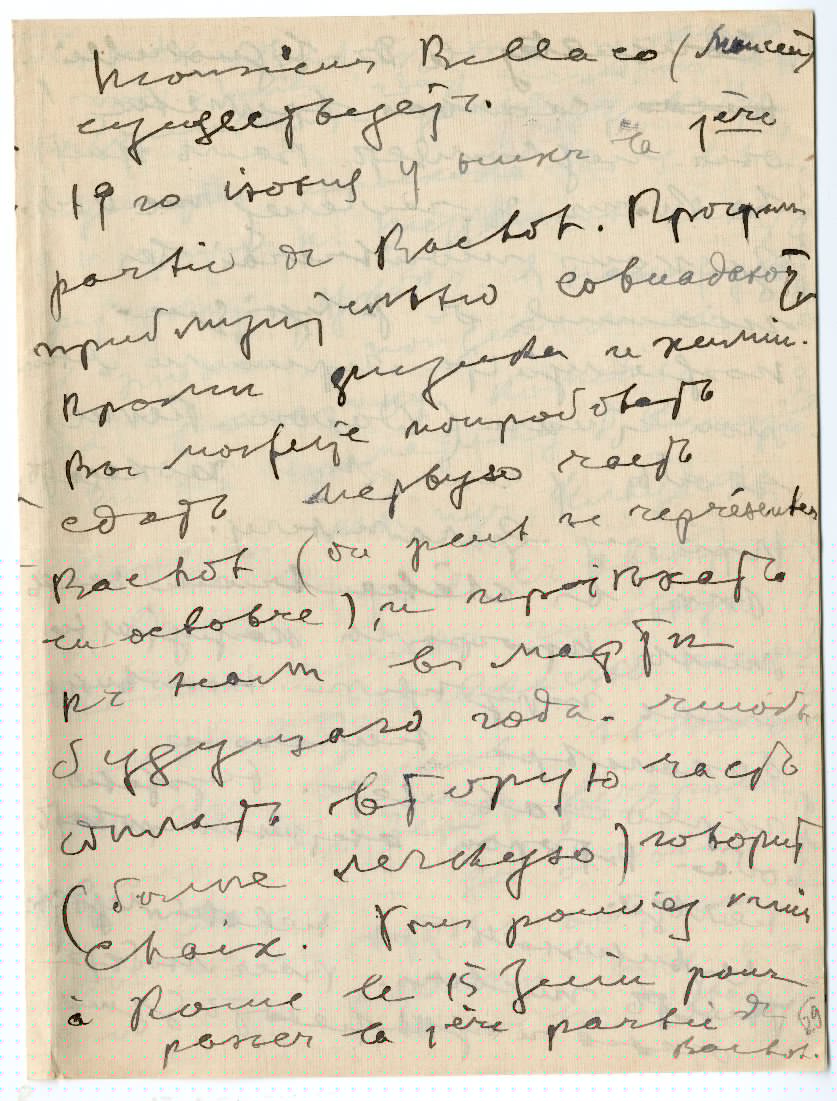 Monsieur Bellaco (
существуетъ.
19го іюня у нихъ la 1ère
partie de Bachot. Програм
приблизительно совпадаютъ
кромѣ физика и химіи.
Вы можете попробовать
сдать первую часть
Bachot (on peut se représenter
en octobre), и пріѣхать
къ намъ въ мартѣ
будущаго года. чтобъ
сдѣлать вторую часть
(болѣе легкую) говорит
choix. Vous pouvez venir
à Rome le 15 Juin pour
passer la 1ère partie de
Bachot.
29